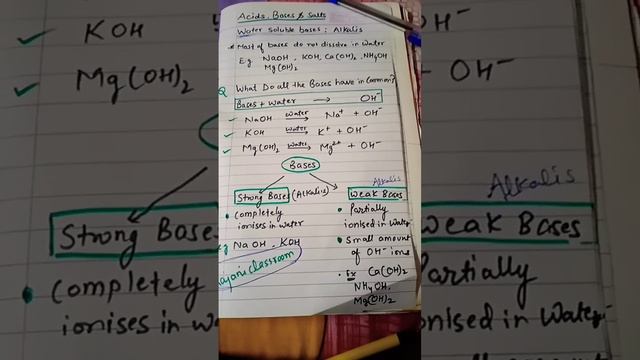 Acids, Bases & Salts
Water soluble bases : Alkalis
* Most of bases do not dissolve in water
E.g NaOH , KOH, Ca(OH)2 , NH4OH
Mg(OH)2
Q What Do all the Bases have in Common?
Bases + water → OH⁻
NaOH water→ Na⁺ + OH⁻
KOH water→ K⁺ + OH⁻
Mg(OH)2 water→ Mg²⁺ + OH⁻
Bases
Strong Bases (Alkalis)
• completely
ionises in water
Eg NaOH , KOH
Classroom
Alkalis
Weak Bases
• Partially
ionised in water
• Small amount
of OH⁻ ions
• Ex Ca(OH)2
NH4OH,
Mg(OH)2
KOH
Mg(OH)2
Strong Bases
• completely
ionises in wa
OH⁻
OH⁻
Alkalis
Weak Bases
Partially
onised in water